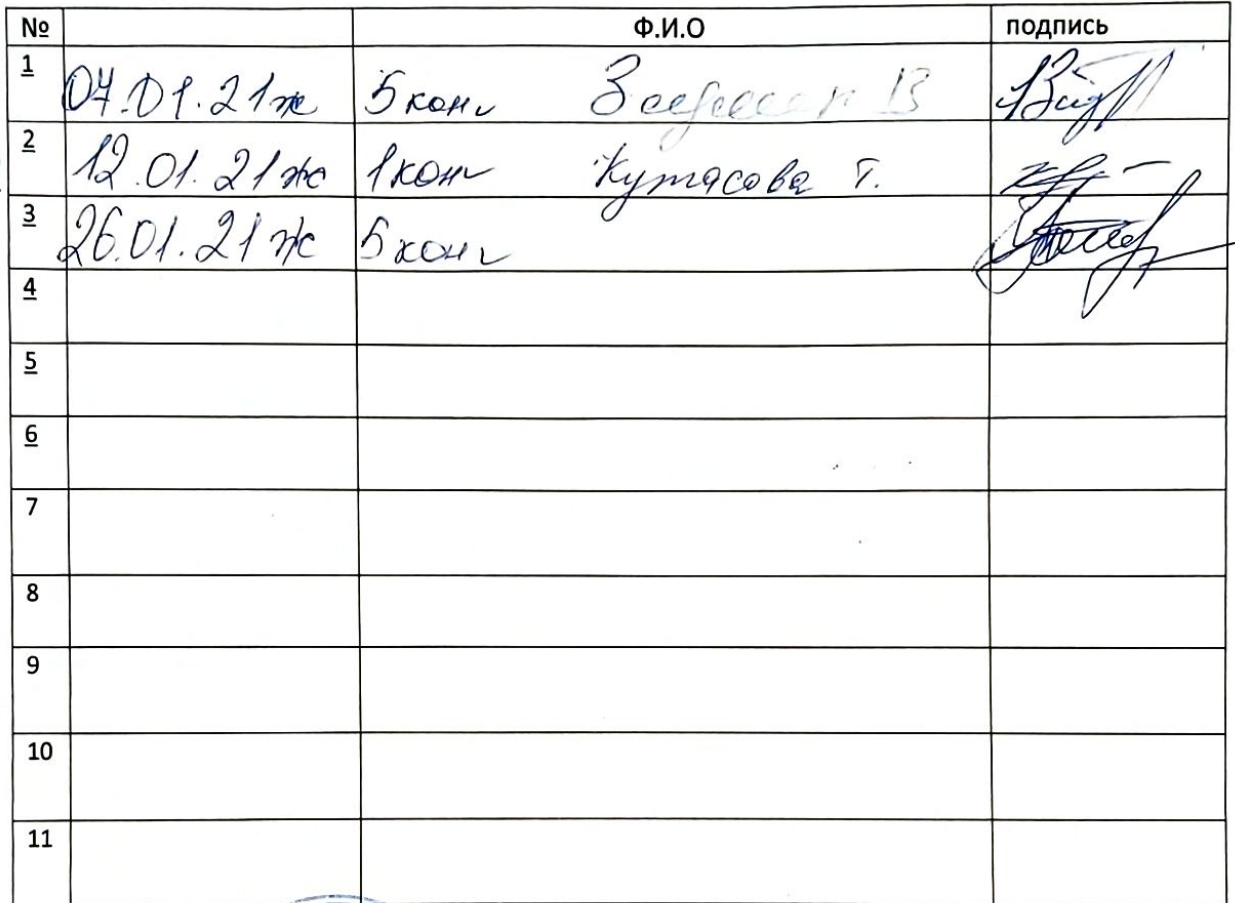 № Ф.И.О подпись
1 07.01.21ж 5 конч В
2 12.01.21ж 1 конч Кутасова Т.
3 26.01.21ж 5 конч
4
5
6
7
8
9
10
11